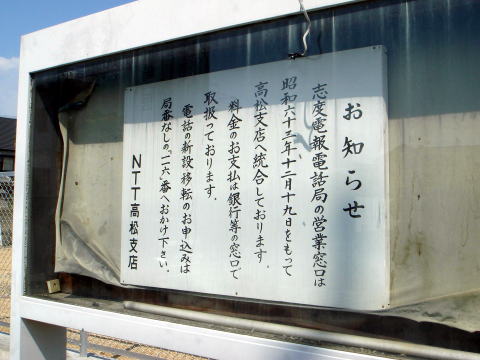 お知らせ
志度電報電話局の営業窓口は
昭和六十三年十二月十九日をもって
高松支店へ統合しております。
料金のお支払は銀行等の窓口で、
取扱っております。
電話の新設移転のお申込みは
局番なしの「一一六番へおかけ下さい。
NTT高松支店